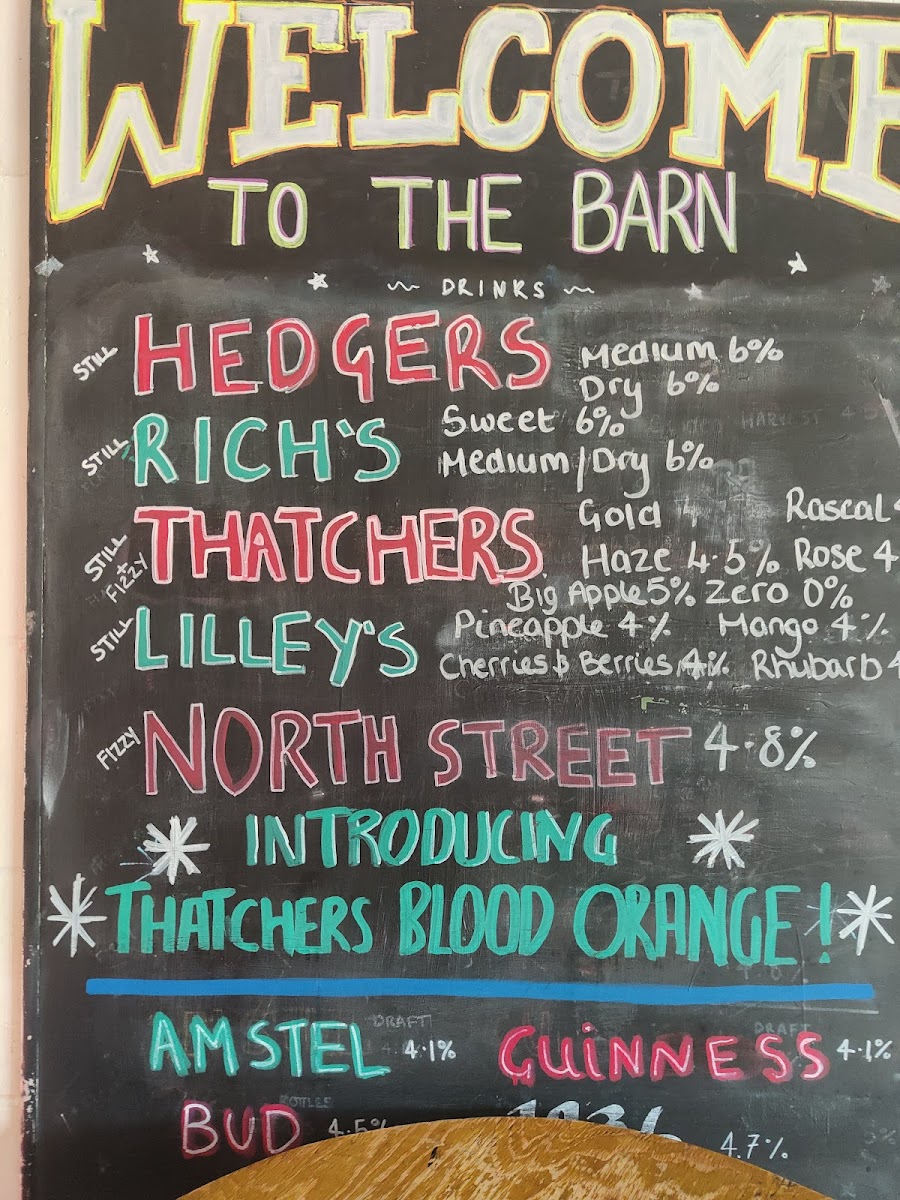 WELCOME
TO THE BARN
~ DRINKS ~
STILL HEDGERS Medium 6%
Dry 6%
STILL RICH'S Sweet 6%
Medium/Dry 6%
STILL + FIZZY THATCHERS Gold Rascal 4
Haze 4.5% Rose 4
Big Apple 5% Zero 0%
STILL LILLEY'S Pineapple 4% Mango 4%
Cherries & Berries 4% Rhubarb 4
FIZZY NORTH STREET 4.8%
INTRODUCING
THATCHERS BLOOD ORANGE!
DRAFT DRAFT
AMSTEL 4.1% GUINNESS 4.1%
BOTTLES
BUD 4.5% 1936 4.7%